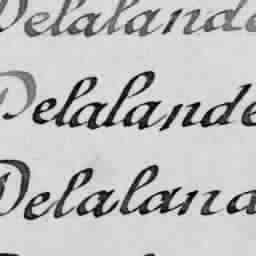 Delalande
Delalande
Deland